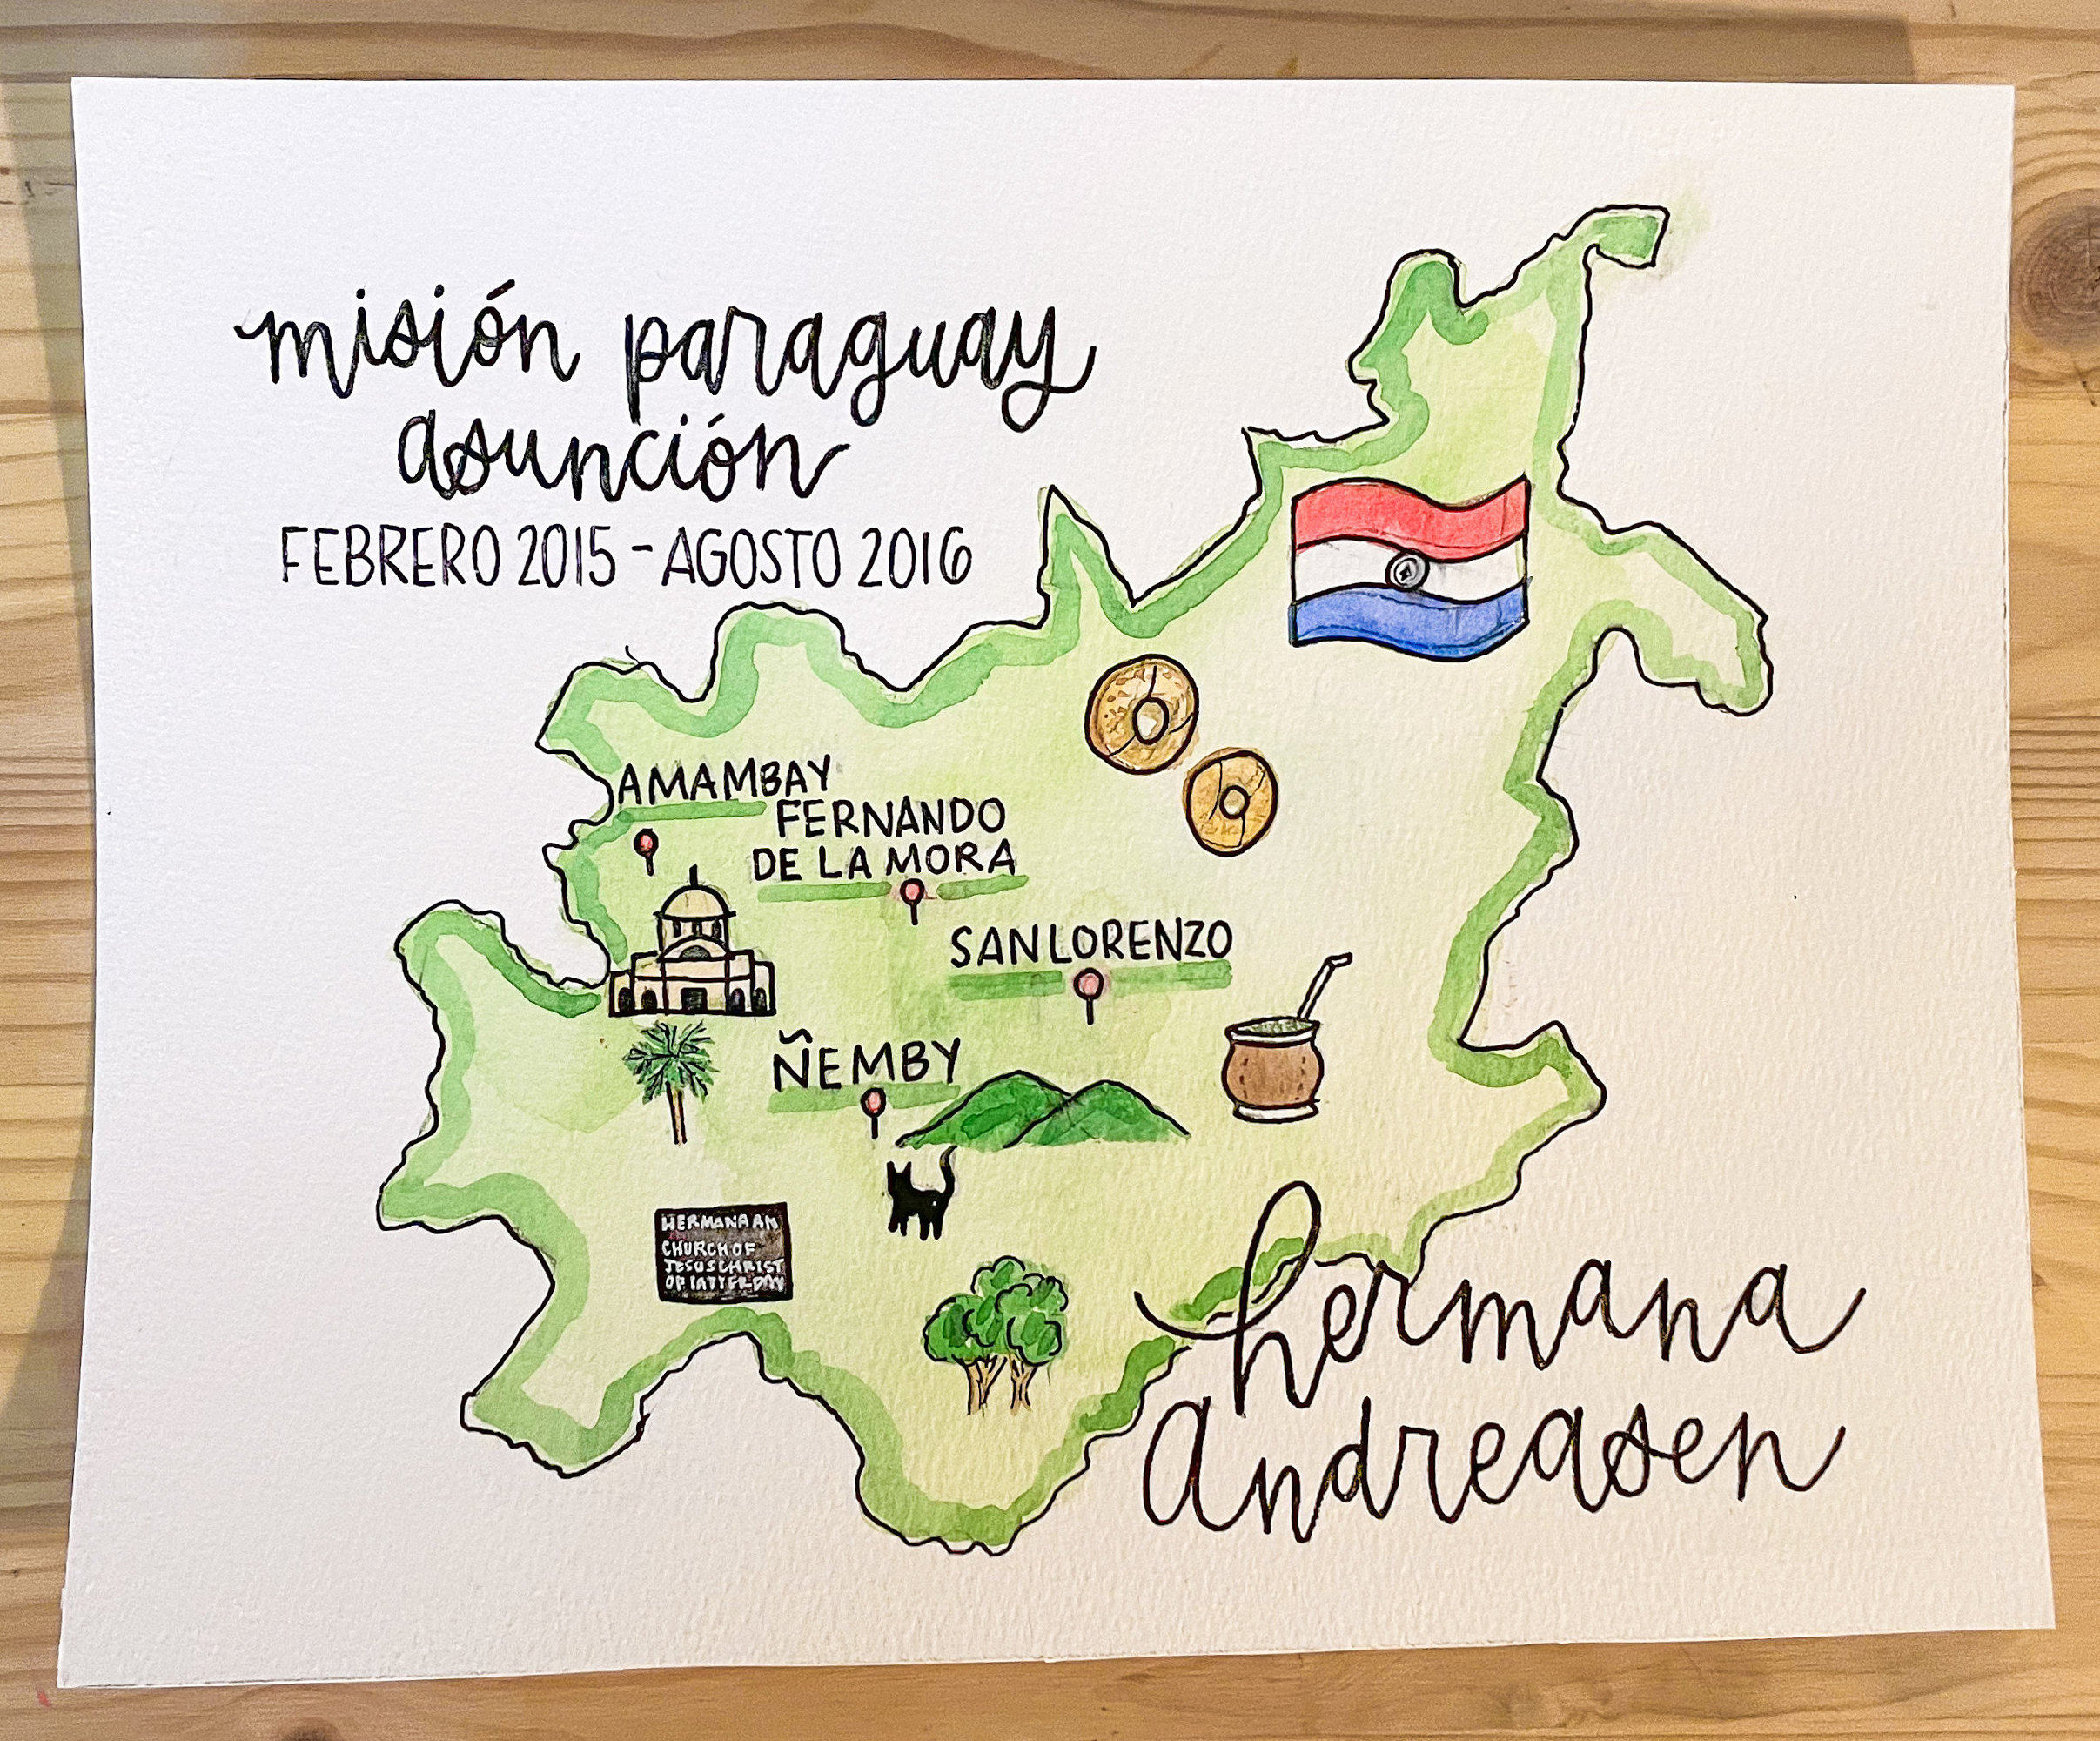 misión paraguay
asunción
FEBRERO 2015 - AGOSTO 2016
AMAMBAY
FERNANDO
DE LA MORA
SAN LORENZO
ÑEMBY
HERMANA AN
CHURCH OF
JESUS CHRIST
OF LATTER DAY
hermana
andreasen